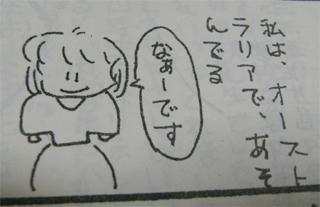 私は、オースト
ラリアで、あそ
んでる
なぁーです